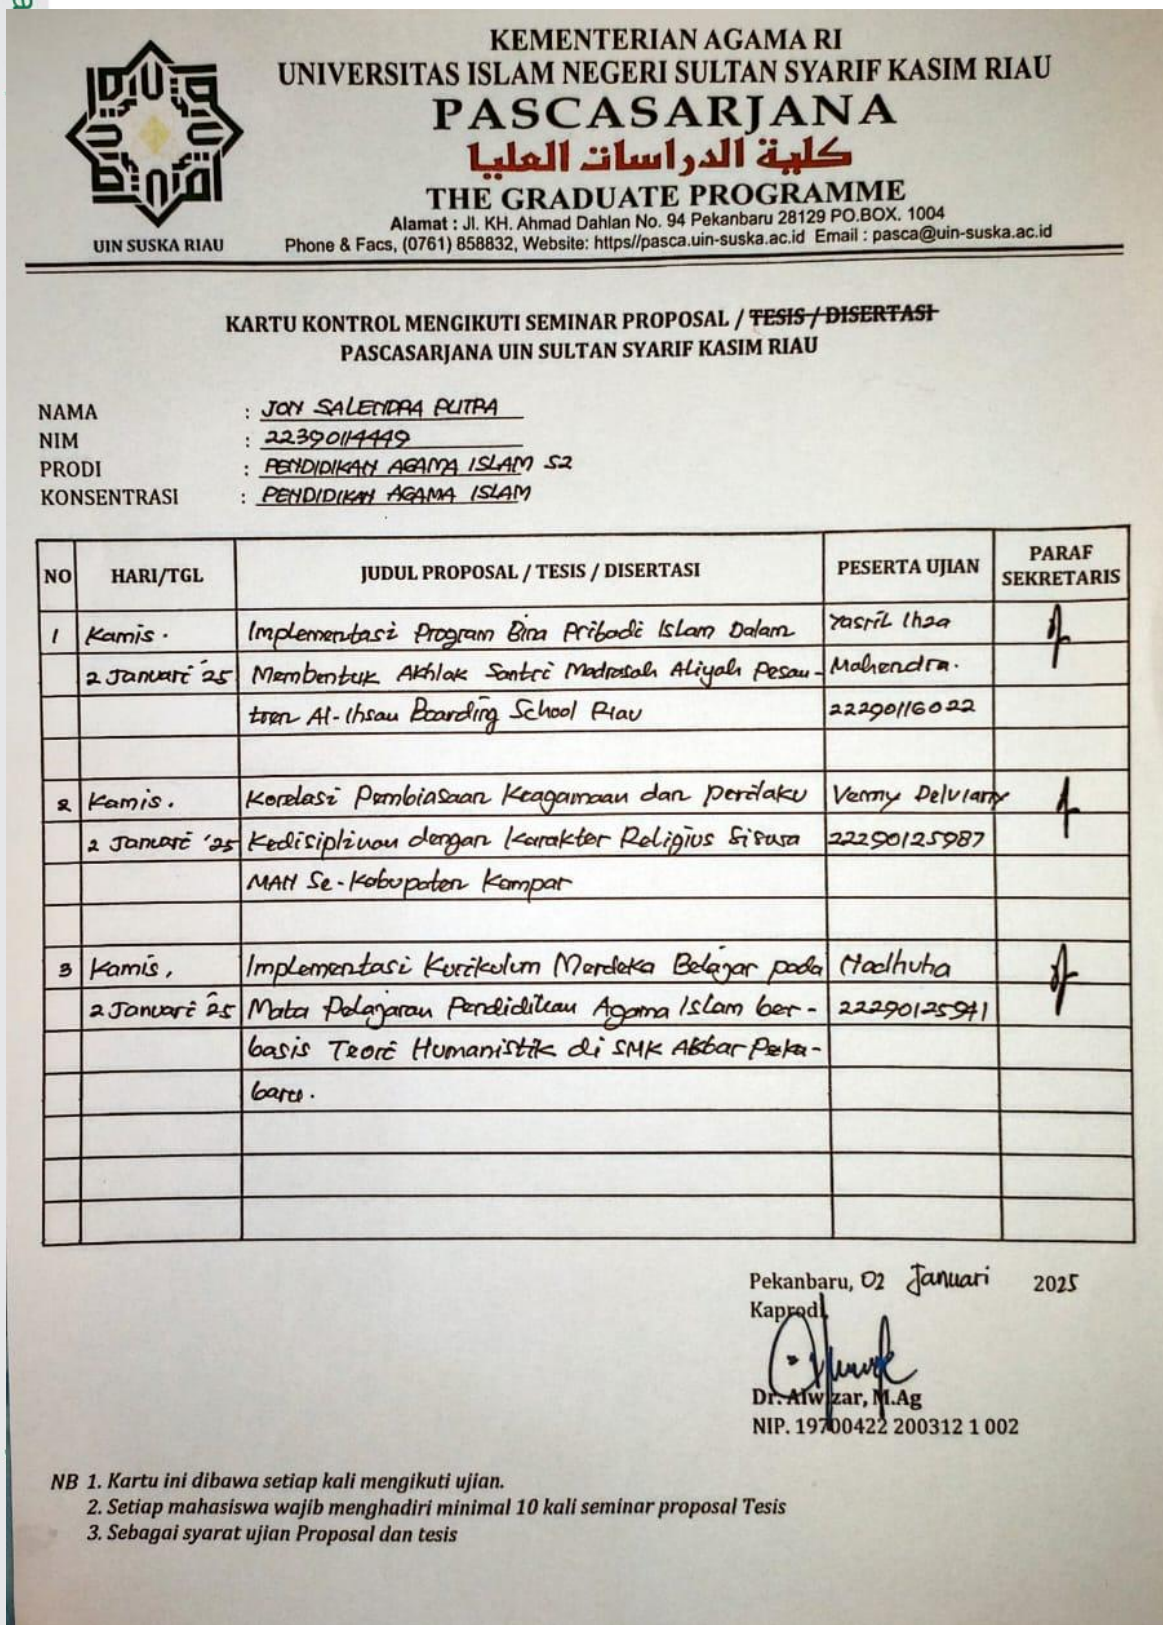 KEMENTERIAN AGAMA RI
UNIVERSITAS ISLAM NEGERI SULTAN SYARIF KASIM RIAU
PASCASARJANA
كلية الدراسات العليا
THE GRADUATE PROGRAMME
Alamat : Jl. KH. Ahmad Dahlan No. 94 Pekanbaru 28129 PO.BOX. 1004
Phone & Facs, (0761) 858832, Website: https//pasca.uin-suska.ac.id Email : pasca@uin-suska.ac.id
UIN SUSKA RIAU
KARTU KONTROL MENGIKUTI SEMINAR PROPOSAL / TESIS / DISERTASI
PASCASARJANA UIN SULTAN SYARIF KASIM RIAU
NAMA : JON SALENDRA PUTRA
NIM : 22390114449
PRODI : PENDIDIKAN AGAMA ISLAM S2
KONSENTRASI : PENDIDIKAN AGAMA ISLAM
NO HARI/TGL JUDUL PROPOSAL / TESIS / DISERTASI PESERTA UJIAN PARAF SEKRETARIS
1 Kamis. Implementasi Program Bina Pribadi Islam Dalam Yasril Ihza
2 Januari '25 Membentuk Akhlak Santri Madrasah Aliyah Pesan- Mahendra.
tren Al-Ihsan Boarding School Riau 22290116022
2 Kamis. Korelasi Pembiasaan Keagamaan dan perilaku Venny Delviany
2 Januari '25 Kedisiplinan dengan Karakter Religius Siswa 22290125987
MAN Se-Kabupaten Kampar
3 Kamis, Implementasi Kurikulum Merdeka Belajar pada Nadhuha
2 Januari 25 Mata Pelajaran Pendidikan Agama Islam ber- 22290125941
basis Teori Humanistik di SMK Akbar Peka-
baru.
Pekanbaru, 02 Januari 2025
Kaprodi
Dr. Alwizar, M.Ag
NIP. 19700422 200312 1 002
NB 1. Kartu ini dibawa setiap kali mengikuti ujian.
2. Setiap mahasiswa wajib menghadiri minimal 10 kali seminar proposal Tesis
3. Sebagai syarat ujian Proposal dan tesis